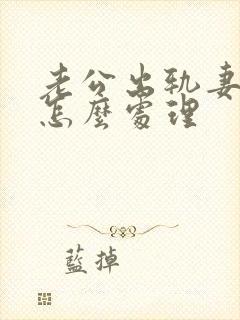 老公出轨妻
怎麼處理
藍掉